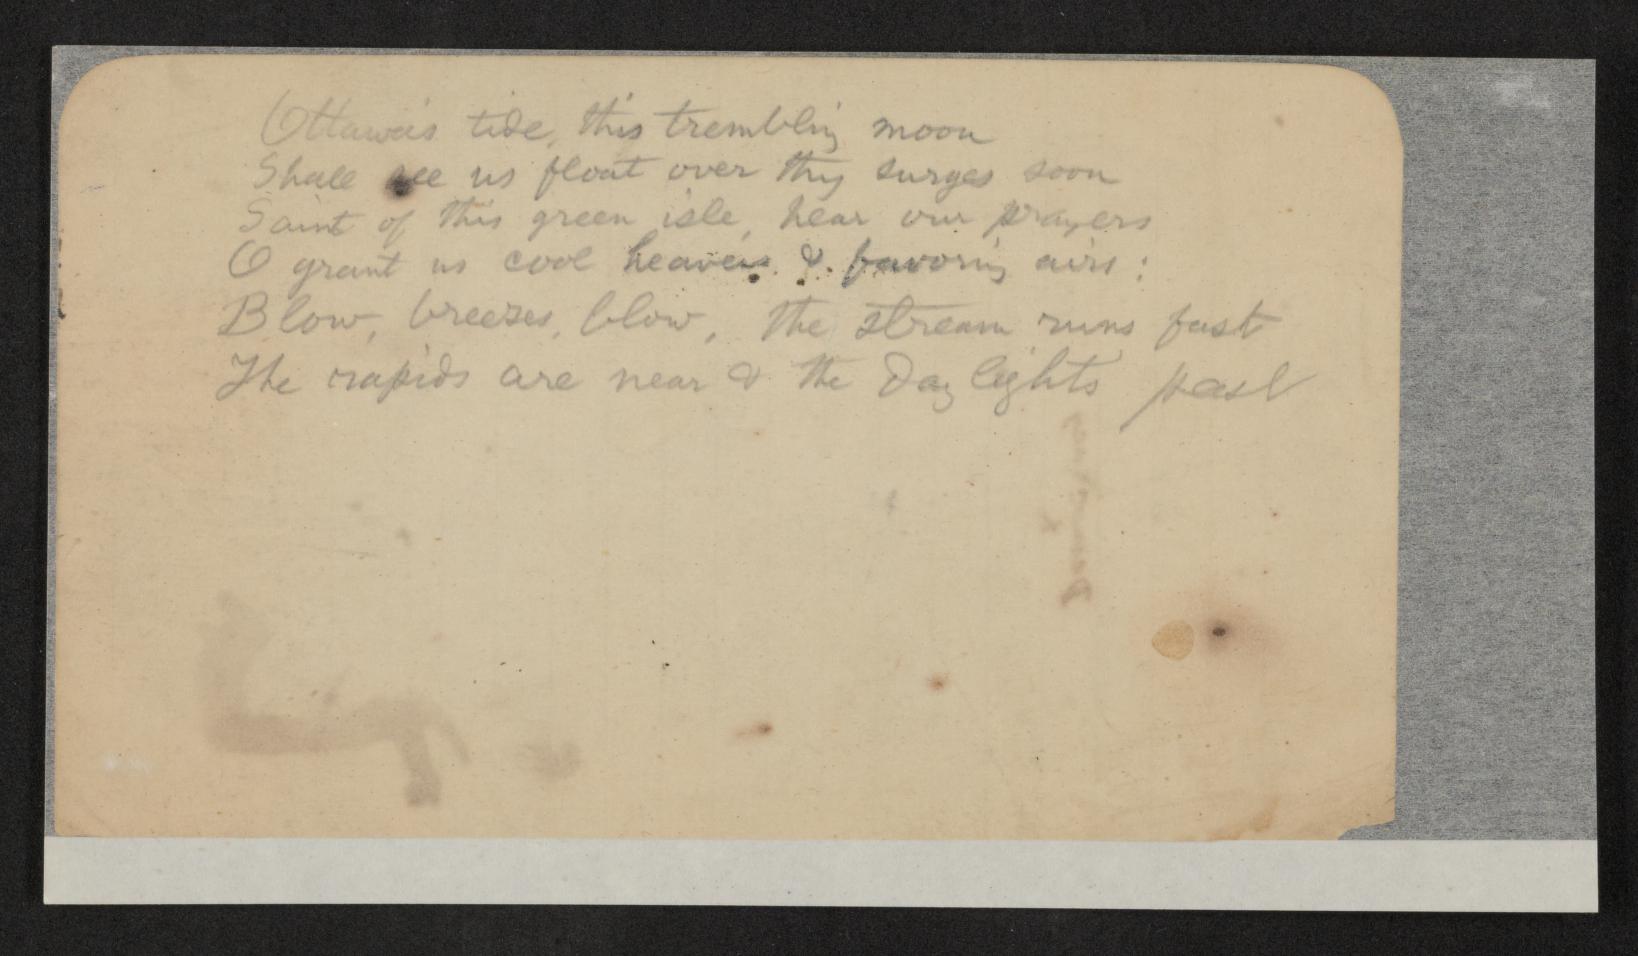 Ottawa's tide, this trembling moon
Shall see us float over thy surges soon
Saint of this green isle, hear our prayers
O grant us cool heavens & favoring airs:
Blow, breezes, blow, the stream runs fast
The rapids are near & the daylights past